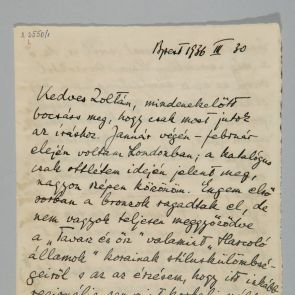 2550/1
Bpest 1936 III 30
Kedves Zoltán, mindenekelőtt
bocsáss meg, hogy csak most jutok
az íráshoz. Január végén - február
elején voltam Londonban; a katalógus
csak ottlétem idején jelent meg,
nagyon szépen köszönöm. Engem első
sorban a bronzok ragadtak el, de
nem vagyok teljesen meggyőződve
a „Tavasz és ősz" valamint „Harcoló
államok" korainak stíluskülömbsé-
geiről s az az érzésem, hogy itt inkább